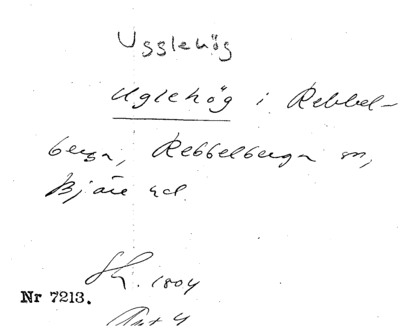 Ugglehög
Uglehög i Rebbel-
berga, Rebbelberga sn,
Bjäre hd.
Sk. 1804
Nr 7213.
Akt 4